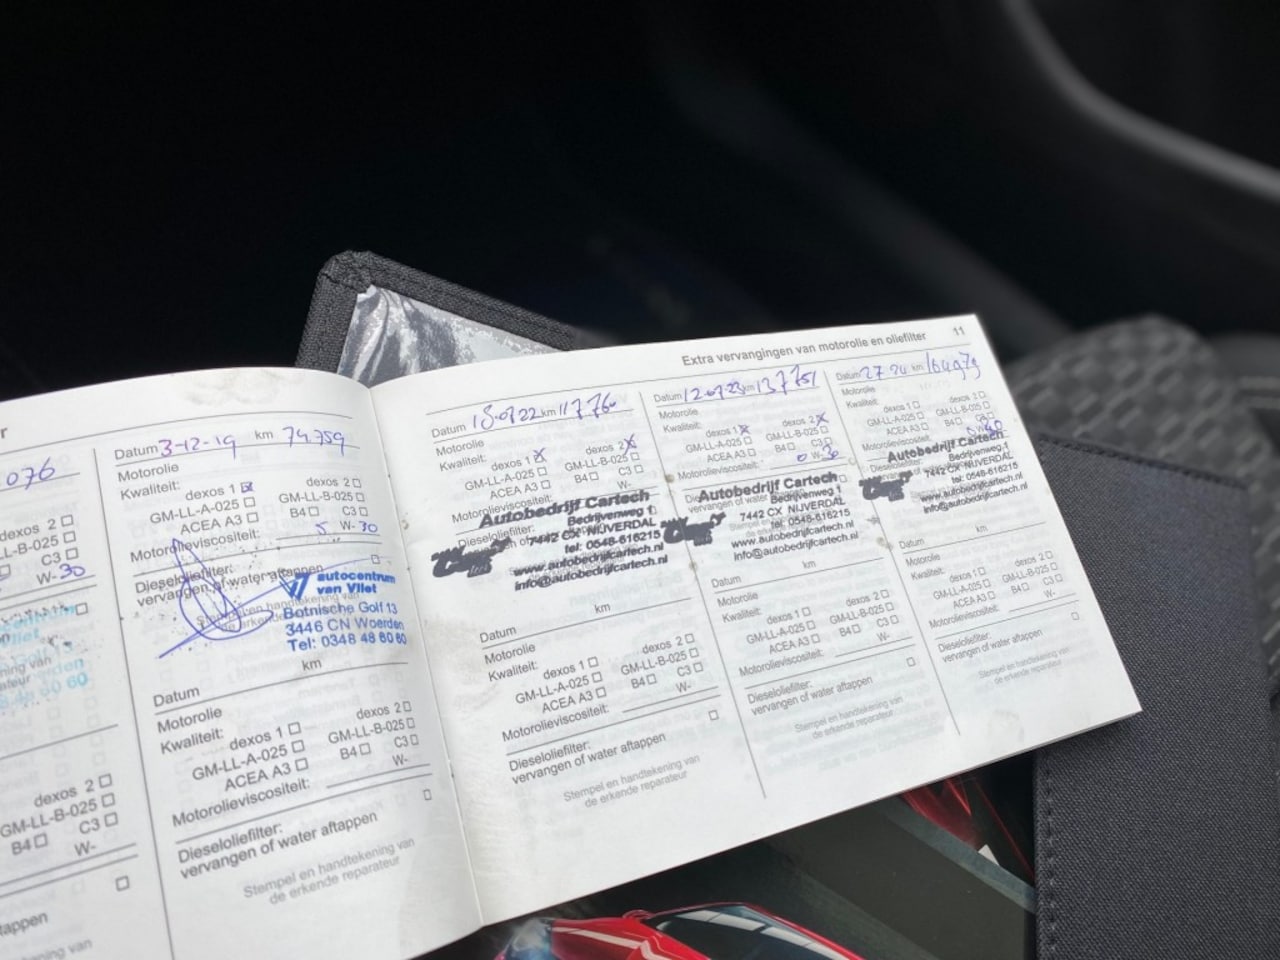 r
076
dexos 2
L-B-025
C3
W-30
dexos 2
GM-LL-B-025
B4 C3
W-
ftappen
Datum 3-12-19 km 74.759
Motorolie
Kwaliteit:
dexos 1 dexos 2
GM-LL-A-025 GM-LL-B-025
ACEA A3 B4 C3
Motorolieviscositeit: 5 W-30
Dieseloliefilter:
vervangen of water aftappen
autocentrum
van Vliet
Botnische Golf 13
3446 CN Woerden
Tel: 0348 48 80 80
Datum km
Motorolie
Kwaliteit:
dexos 1 dexos 2
GM-LL-A-025 GM-LL-B-025
ACEA A3 B4 C3
Motorolieviscositeit: W-
Dieseloliefilter:
vervangen of water aftappen
Stempel en handtekening van
de erkende reparateur
Extra vervangingen van motorolie en oliefilter 11
Datum km
Motorolie
Kwaliteit:
dexos 1 dexos 2
GM-LL-A-025 GM-LL-B-025
ACEA A3 B4 C3
Motorolieviscositeit:
Autobedrijf Cartech
Bedrijvenweg 1
7442 CX NIJVERDAL
tel: 0548-616215
www.autobedrijfcartech.nl
info@autobedrijfcartech.nl
Datum km
Motorolie
Kwaliteit:
dexos 1 dexos 2
GM-LL-A-025 GM-LL-B-025
ACEA A3 B4 C3
Motorolieviscositeit: W-
Dieseloliefilter:
vervangen of water aftappen
Stempel en handtekening van
de erkende reparateur
Datum 12-07-23 km 137751
Motorolie
Kwaliteit:
dexos 1 dexos 2
GM-LL-A-025 GM-LL-B-025
ACEA A3 B4 C3
Motorolieviscositeit: 0 W-30
Autobedrijf Cartech
Bedrijvenweg 1
7442 CX NIJVERDAL
tel: 0548-616215
www.autobedrijfcartech.nl
info@autobedrijfcartech.nl
Datum km
Motorolie
Kwaliteit:
dexos 1 dexos 2
GM-LL-A-025 GM-LL-B-025
ACEA A3 B4 C3
Motorolieviscositeit: W-
Dieseloliefilter:
vervangen of water aftappen
Stempel en handtekening van
de erkende reparateur
Datum km
Motorolie
Kwaliteit:
dexos 1 dexos 2
GM-LL-A-025 GM-LL-B-025
ACEA A3 B4
Motorolieviscositeit:
Autobedrijf Cartech
Bedrijvenweg 1
7442 CX NIJVERDAL
tel: 0548-616215
www.autobedrijfcartech.nl
info@autobedrijfcartech.nl
Datum km
Motorolie
Kwaliteit:
dexos 1 dexos 2
GM-LL-A-025 GM-LL-B-025
ACEA A3 B4 C3
Motorolieviscositeit: W-
Dieseloliefilter:
vervangen of water aftappen
Stempel en handtekening van
de erkende reparateur